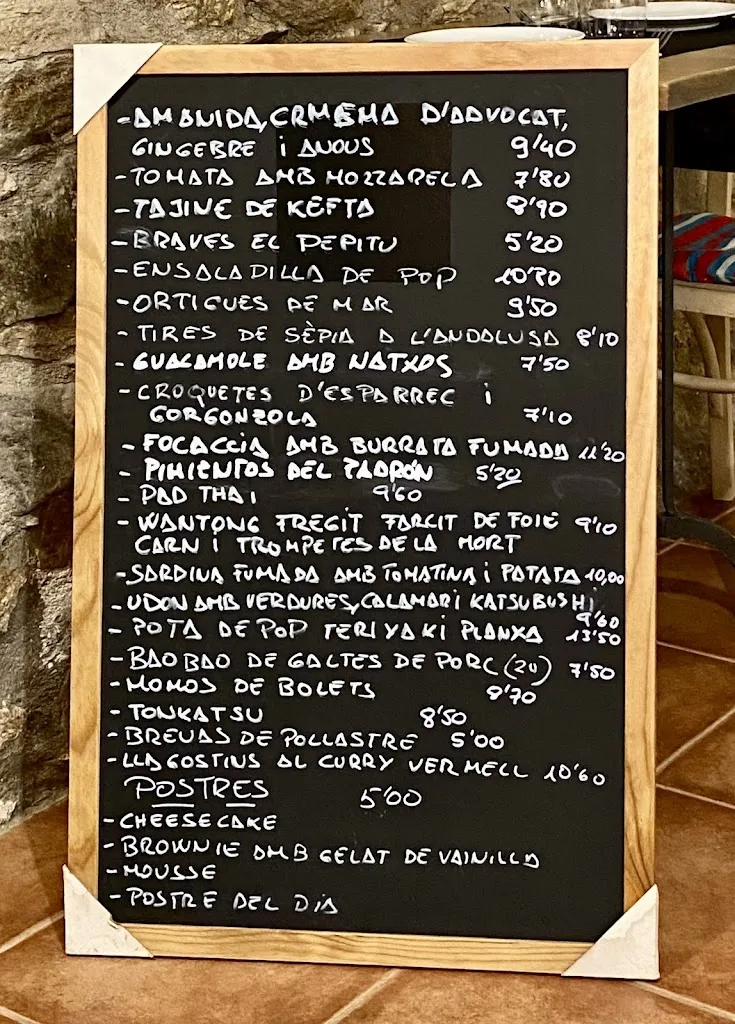 -AMANIDA, CREMEMA D'ADVOCAT,
GINGEBRE i ANOUS 9'40
-TOMATA AMB MOZZARELA 7'80
-TAJINE DE KEFTA 8'90
-BRAVES EL PEPITU 5'20
-ENSALADILLA DE POP 10'70
-ORTIGUES DE MAR 9'50
-TIRES DE SÈPIA A L'ANDALUSA 8'10
-GUACAMOLE AMB NATXOS 7'50
-CROQUETES D'ESPARREC i
GORGONZOLA 7'10
-FOCACCIA AMB BURRATA FUMADA 11'20
-PIMIENTOS DEL PADRÓN 5'20
-PAD THAI 9'60
-WANTONG FREGIT FARCIT DE FOIE 9'10
CARN I TROMPETES DE LA MORT
-SARDINA FUMADA AMB TOMATINA i PATATA 10,00
-UDON AMB VERDURES, CALAMAR i KATSUBUSHI
9'60
-POTA DE POP TERIYAKI PLANXA 13'50
-BAO BAO DE GALTES DE PORC (2U) 7'50
-MOMOS DE BOLETS 9'70
-TONKATSU 8'50
-BREVAS DE POLLASTRE 5'00
-LLAGOSTINS AL CURRY VERMELL 10'60
POSTRES 5'00
-CHEESECAKE
-BROWNIE AMB GELAT DE VAINILLA
-MOUSSE
-POSTRE DEL DIA